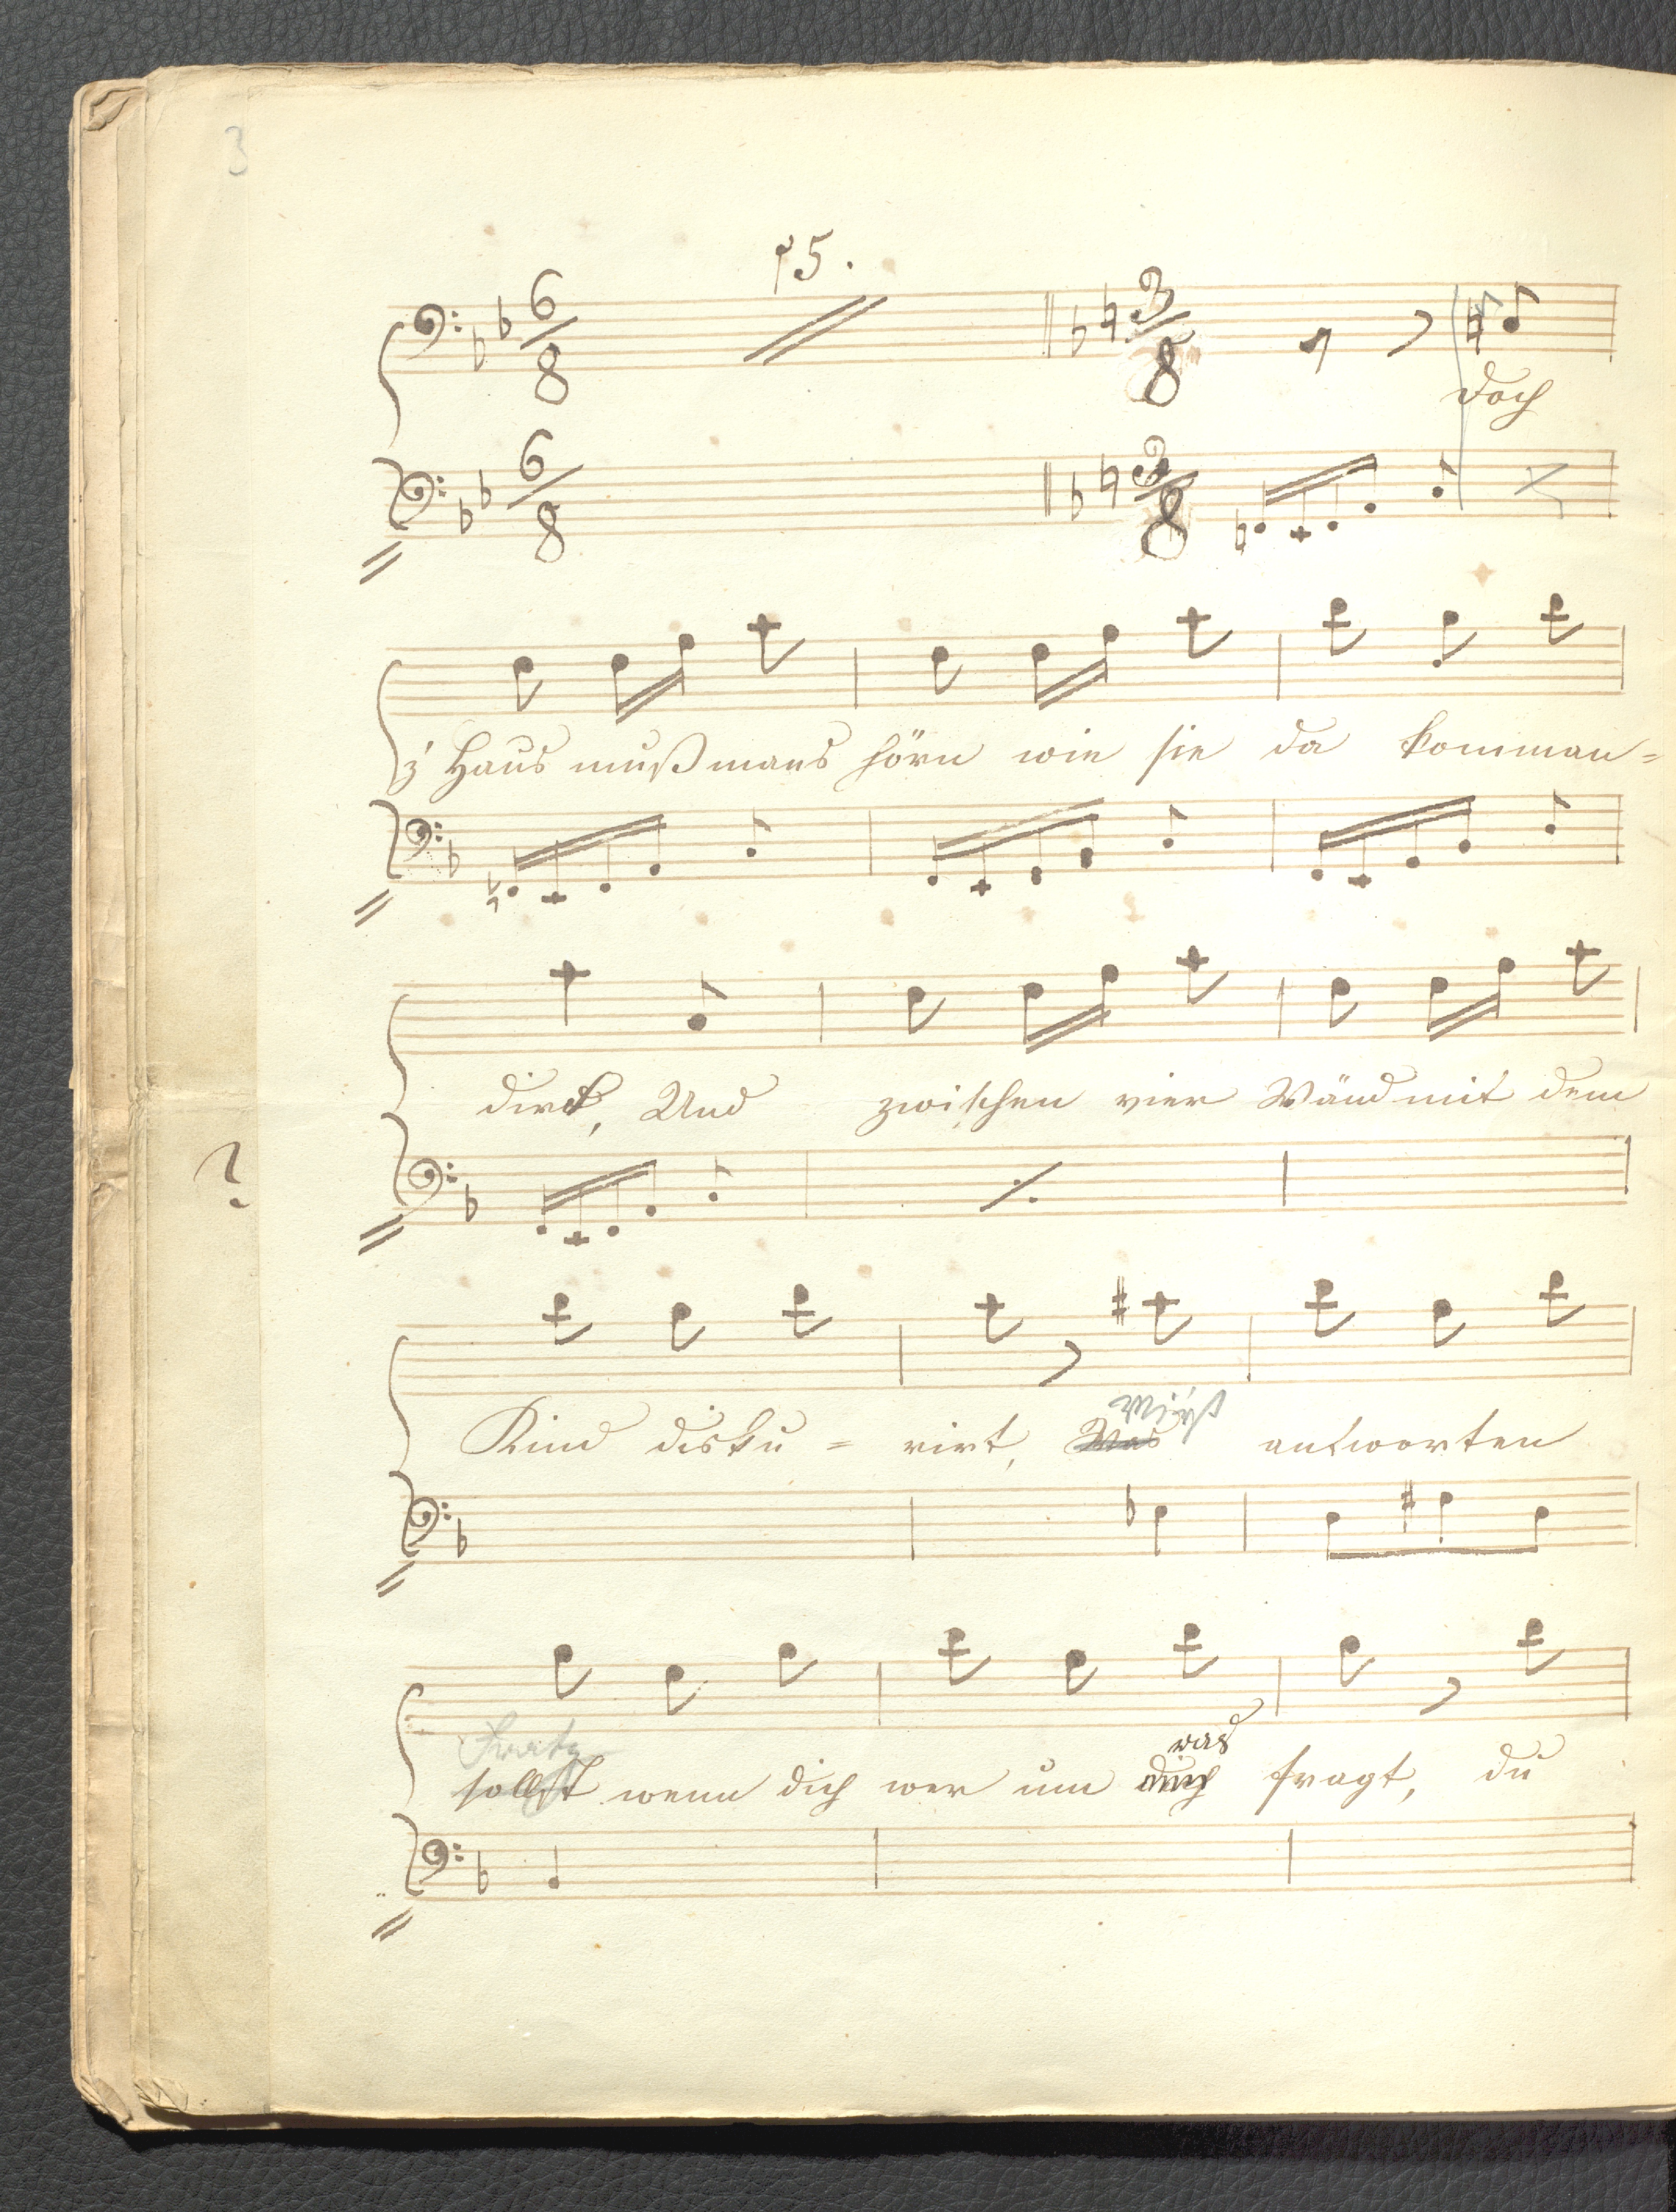 3
15.
6/8 3/8
Doch
6/8 3/8
z' Haus muß mans hörn wie sie da komman=
dirt, Und zwischen vier Wänd mit dem
?
Kind disku = rirt, Was antworten
was
sollst wenn dich wer um fragt, du